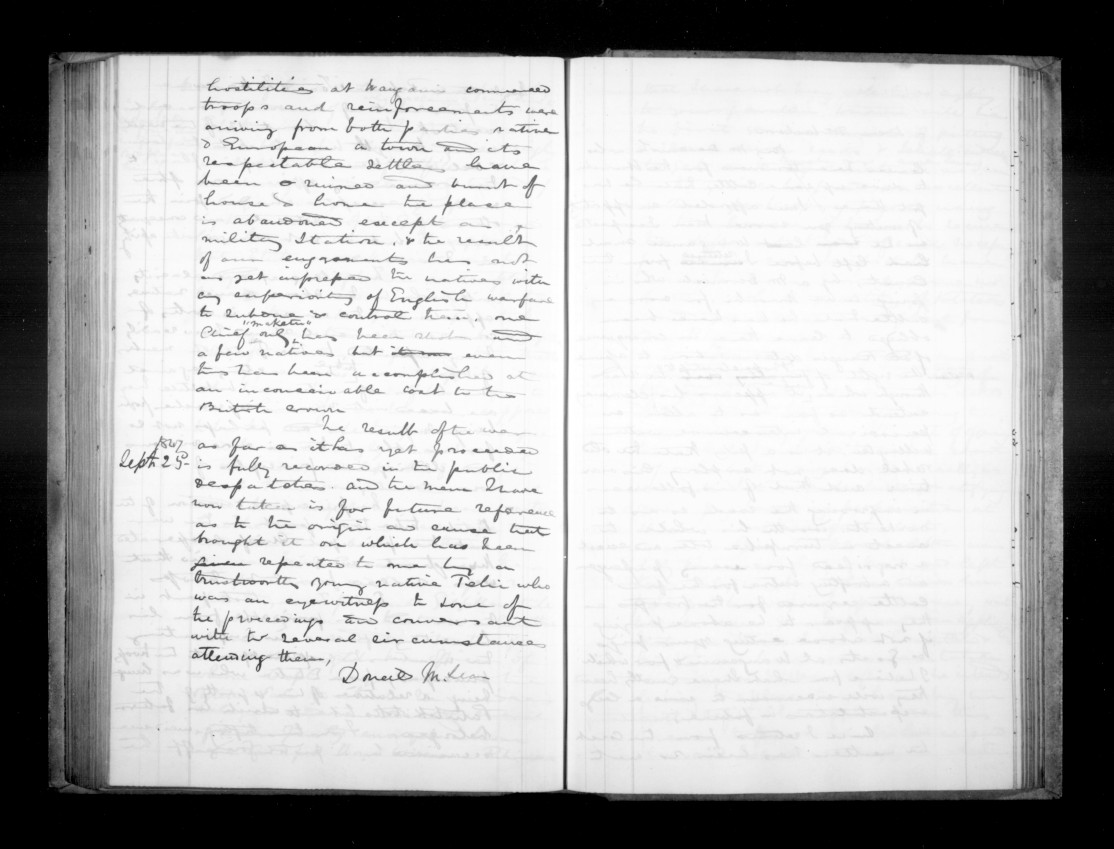 hostilities at Wanganui commenced
troops and reinforcements were
arriving from both parties native
& European a town and its
respectable settlers have
been ruined and burnt of
house & home the place
is abandoned except as a
military Station. & the result
of our engagements has not
as yet impressed the natives with
any superiority of English warfare
to subdue & control them one
"maketu"
Chief only has been shot and
a few natives but it was even
this has been accomplished at
an inconceivable cost to the
British crown
The result of the war
1847
Sept. 25- as far as it has yet proceeded
is fully recorded in the public
despatches and the menu I have
now taken is for future reference
as to the origin and cause that
brought it on which has been
given repeated to me by a
trustworthy young native Tahi who
was an eyewitness to some of
the proceedings and conversant
with the several circumstances
attending them,
Donald McLean